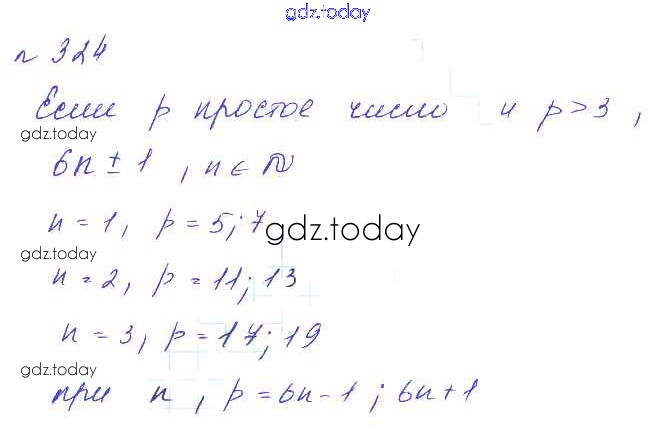 gdz.today
n 324
Если p простое число и p > 3,
gdz.today
6n ± 1, n ∈ N
n = 1, p = 5; 7
gdz.today
gdz.today
n = 2, p = 11; 13
n = 3, p = 17; 19
gdz.today
при n, p = 6n - 1; 6n + 1